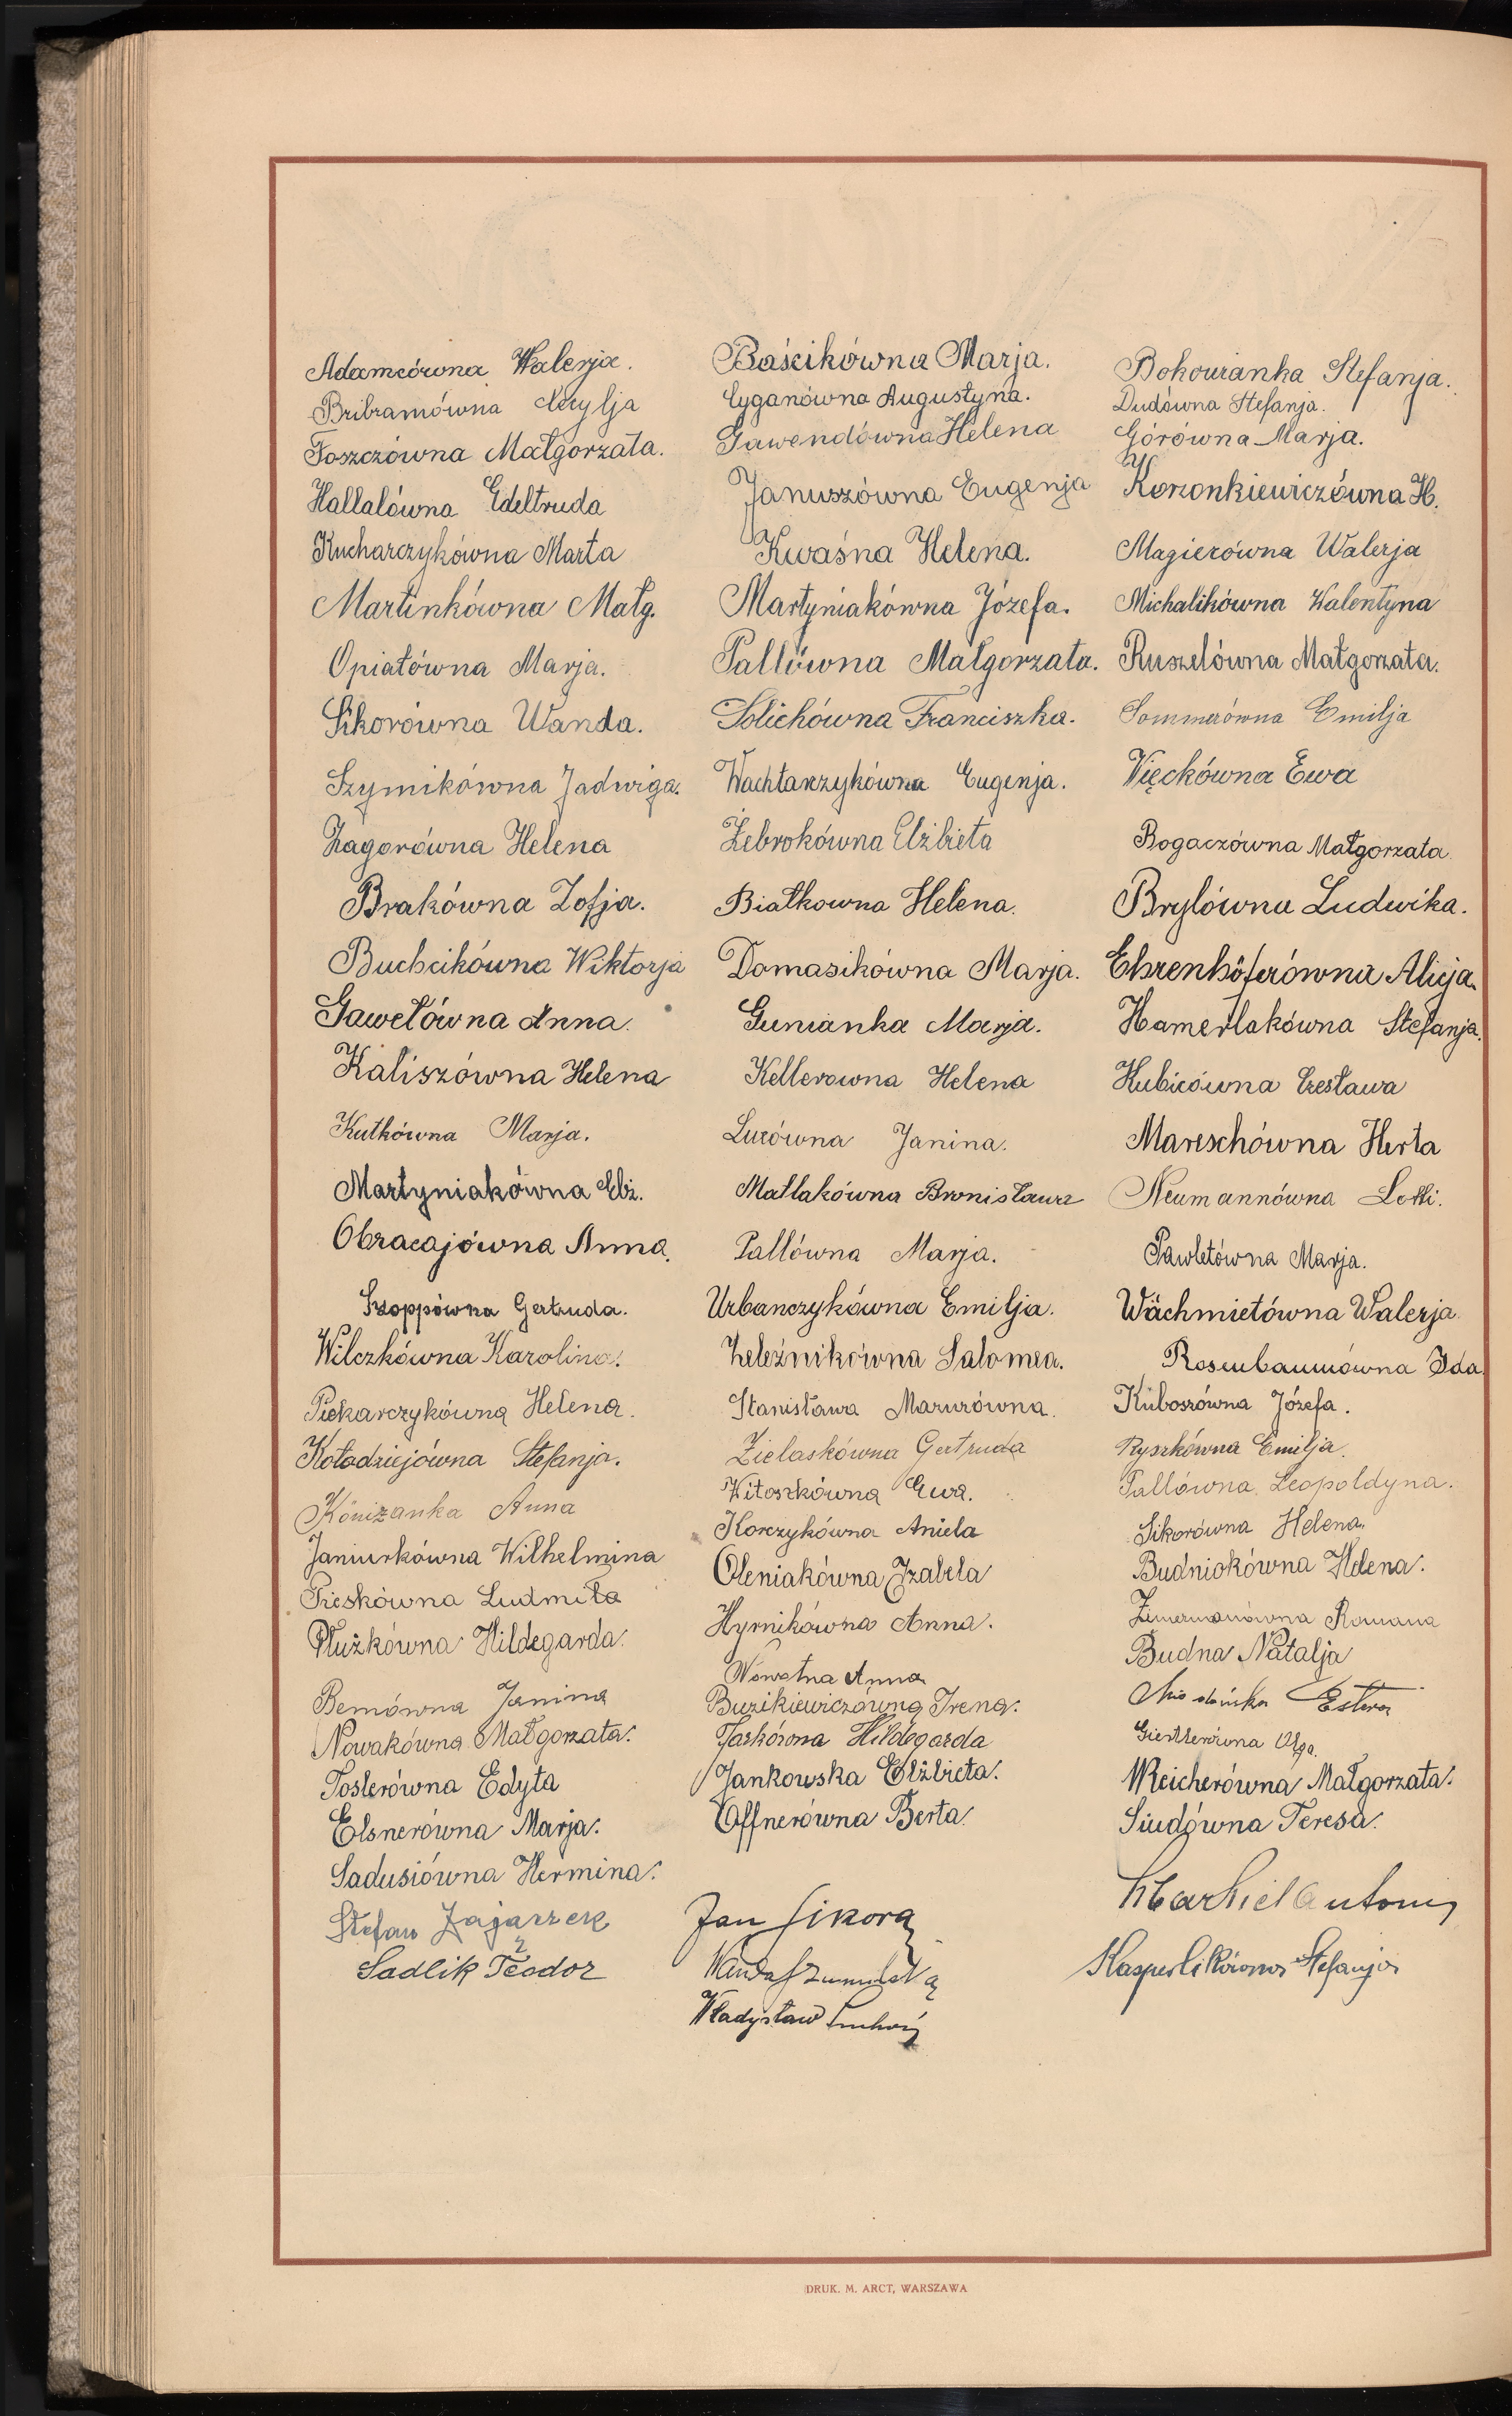 Adamcówna Walerja.
Bribramówna Cecylja
Foszczówna Małgorzata.
Hallalówna Edeltruda
Kucharczykówna Marta
Martinkówna Małg.
Opiatówna Marja.
Sikorówna Wanda.
Szymikówna Jadwiga.
Zagorówna Helena
Brakówna Zofja.
Buchcikówna Wiktorja
Gawełówna Anna.
Kaliszówna Helena
Kutkówna Marja.
Martyniakówna Elż.
Obracajówna Anna.
Szoppówna Gertruda.
Wilczkówna Karolina.
Piekarczykówna Helena.
Kołodziejówna Stefanja.
Köniżanka Anna
Janiurkówna Wilhelmina
Pieskówna Ludmiła
Płużkówna Hildegarda.
Bemówna Janina
Nowakówna Małgorzata.
Toslerówna Edyta
Elsnerówna Marja.
Sadusiówna Hermina.
Stefan Zajaczek
Sadlik Teodor
Baścikówna Marja.
Cyganówna Augustyna.
Gawendówna Helena
Januszówna Eugenja
Kwaśna Helena.
Martyniakówna Józefa.
Pallówna Małgorzata.
Solichówna Franciszka.
Wachtarczykówna Eugenja.
Żebrokówna Elżbieta
Białkowna Helena.
Domasikówna Marja.
Gunianka Marja.
Kellerowna Helena
Lurówna Janina.
Matlakówna Bronisława
Pallówna Marja.
Urbanczykówna Emilja.
Żeleźnikówna Salomea.
Stanisława Mazurówna.
Zielaskówna Gertruda
Witoszkówna Ewa.
Korczykówna Aniela
Oleniakówna Izabela
Hyrnikówna Anna.
Nowatna Anna
Buzikiewiczówna Irena.
Jaskórona Hildegarda
Jankowska Elżbieta.
Offnerówna Berta.
Jan Sikora
Wanda
Władysław
Bokowianka Stefanja.
Dudówna Stefanja.
Górówna Marja.
Korzonkiewiczówna H.
Magierówna Walerja
Michalikówna Walentyna
Ruszelówna Małgorzata.
Sommerówna Emilja
Więckówna Ewa
Bogaczówna Małgorzata
Brylówna Ludwika.
Ehrenhöferówna Alicja.
Hamerlakówna Stefanja.
Kubicówna Czesława
Mareschówna Herta
Neumannówna Lotti.
Pawletówna Marja.
Wächmietówna Walerja.
Rosenbaumówna Ida.
Kuboszówna Józefa.
Ryszkówna Emilja.
Pallówna Leopoldyna.
Sikorówna Helena.
Budniokówna Helena.
Zimermanówna Romana
Budna Natalja
Estera
Giertlerówna Olga.
Wreicherówna Małgorzata.
Siudówna Teresa.
Markiel Antoni
Kasperlikówna Stefanja
DRUK. M. ARCT, WARSZAWA